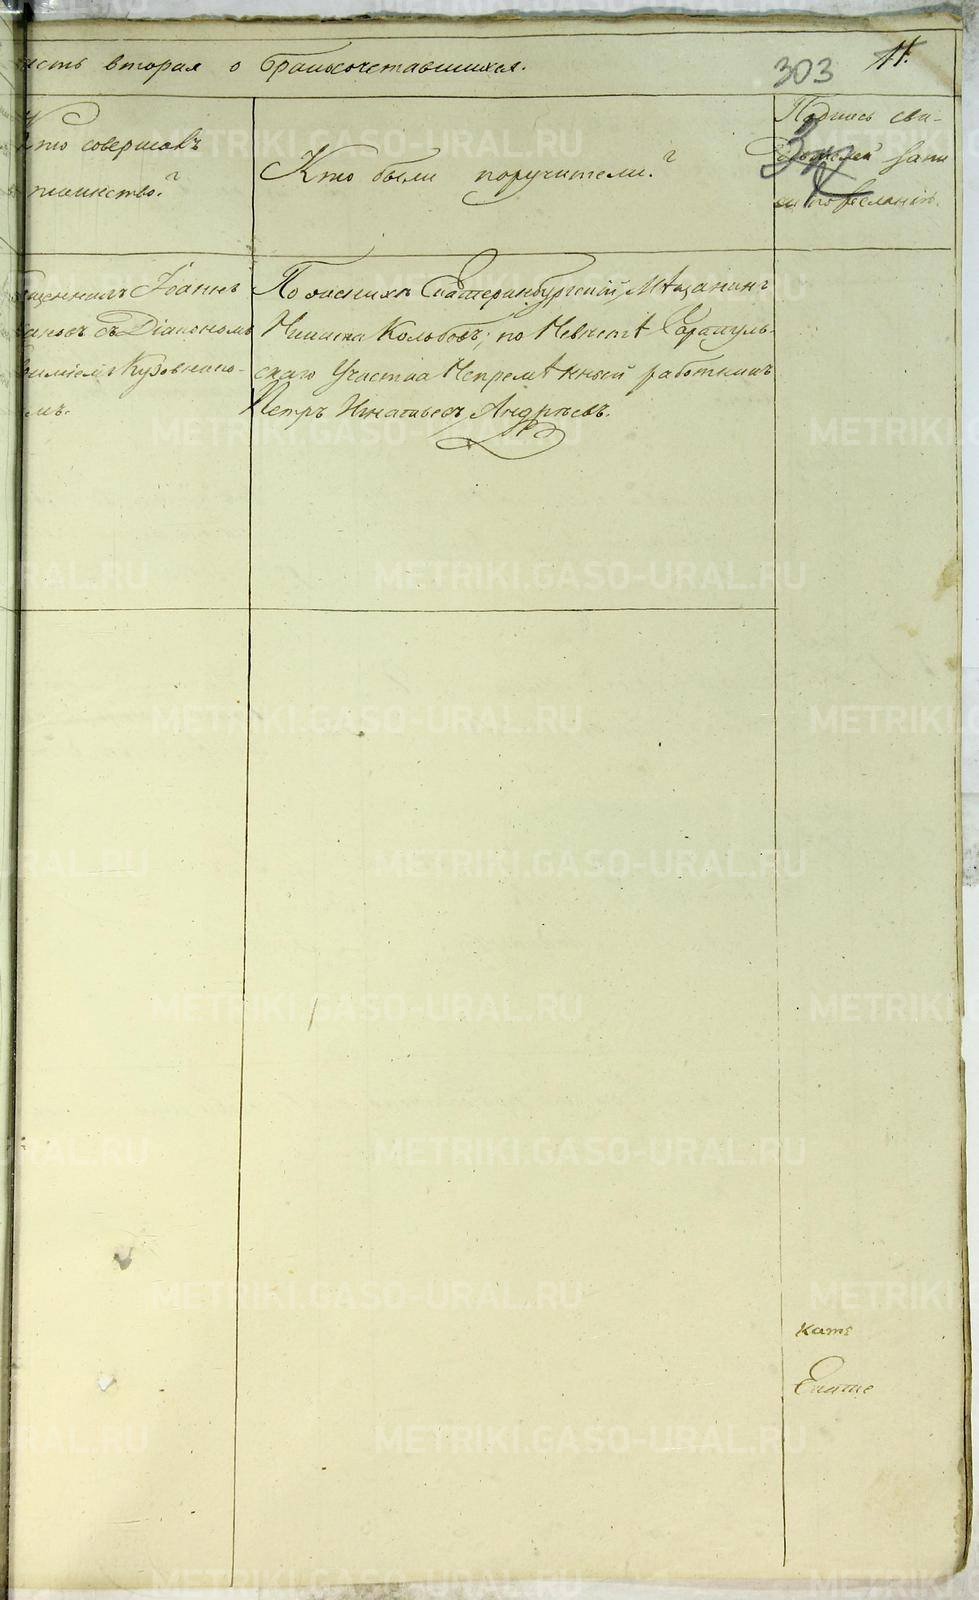 асть вторая о бракосочетавшихся.
303 11.
Кто совершалъ
таинство?
Кто были поручители?
Подпись сви-
дѣтелей запи
си по желанію.
щенникъ Іоаннъ
съ Діакономъ
Кузовнико-
мъ.
По женихѣ Екатеринбургскій Мѣщанинъ
Никита Колобовъ; по Невѣстѣ Сарапуль-
скаго Участка Непремѣнный работникъ
Петръ Игнатьевъ Андрѣевъ.
кате
Екате
METRIKI.GASO-URAL.RU